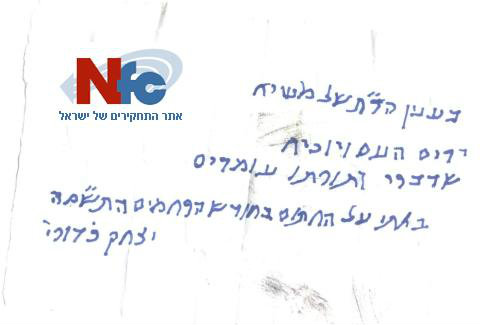 Nfc
אתר התחקירים של ישראל
בענין הר"ת של משיח
ירים העם ויוכיח
שדברי ותורתו עומדים
באתי על החתום בחודש הרחמים התשס"ה
יצחק כדורי